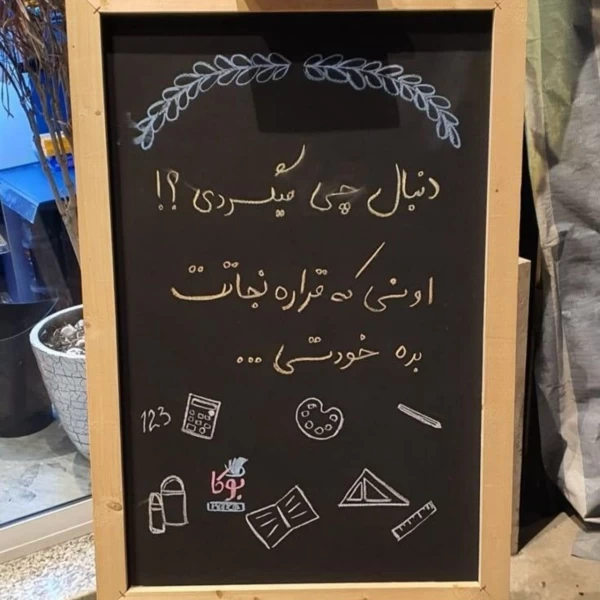 دنبال چی میگردی ؟!
اونی که قراره نجاتت
بده خودتی ...
123
بوکا